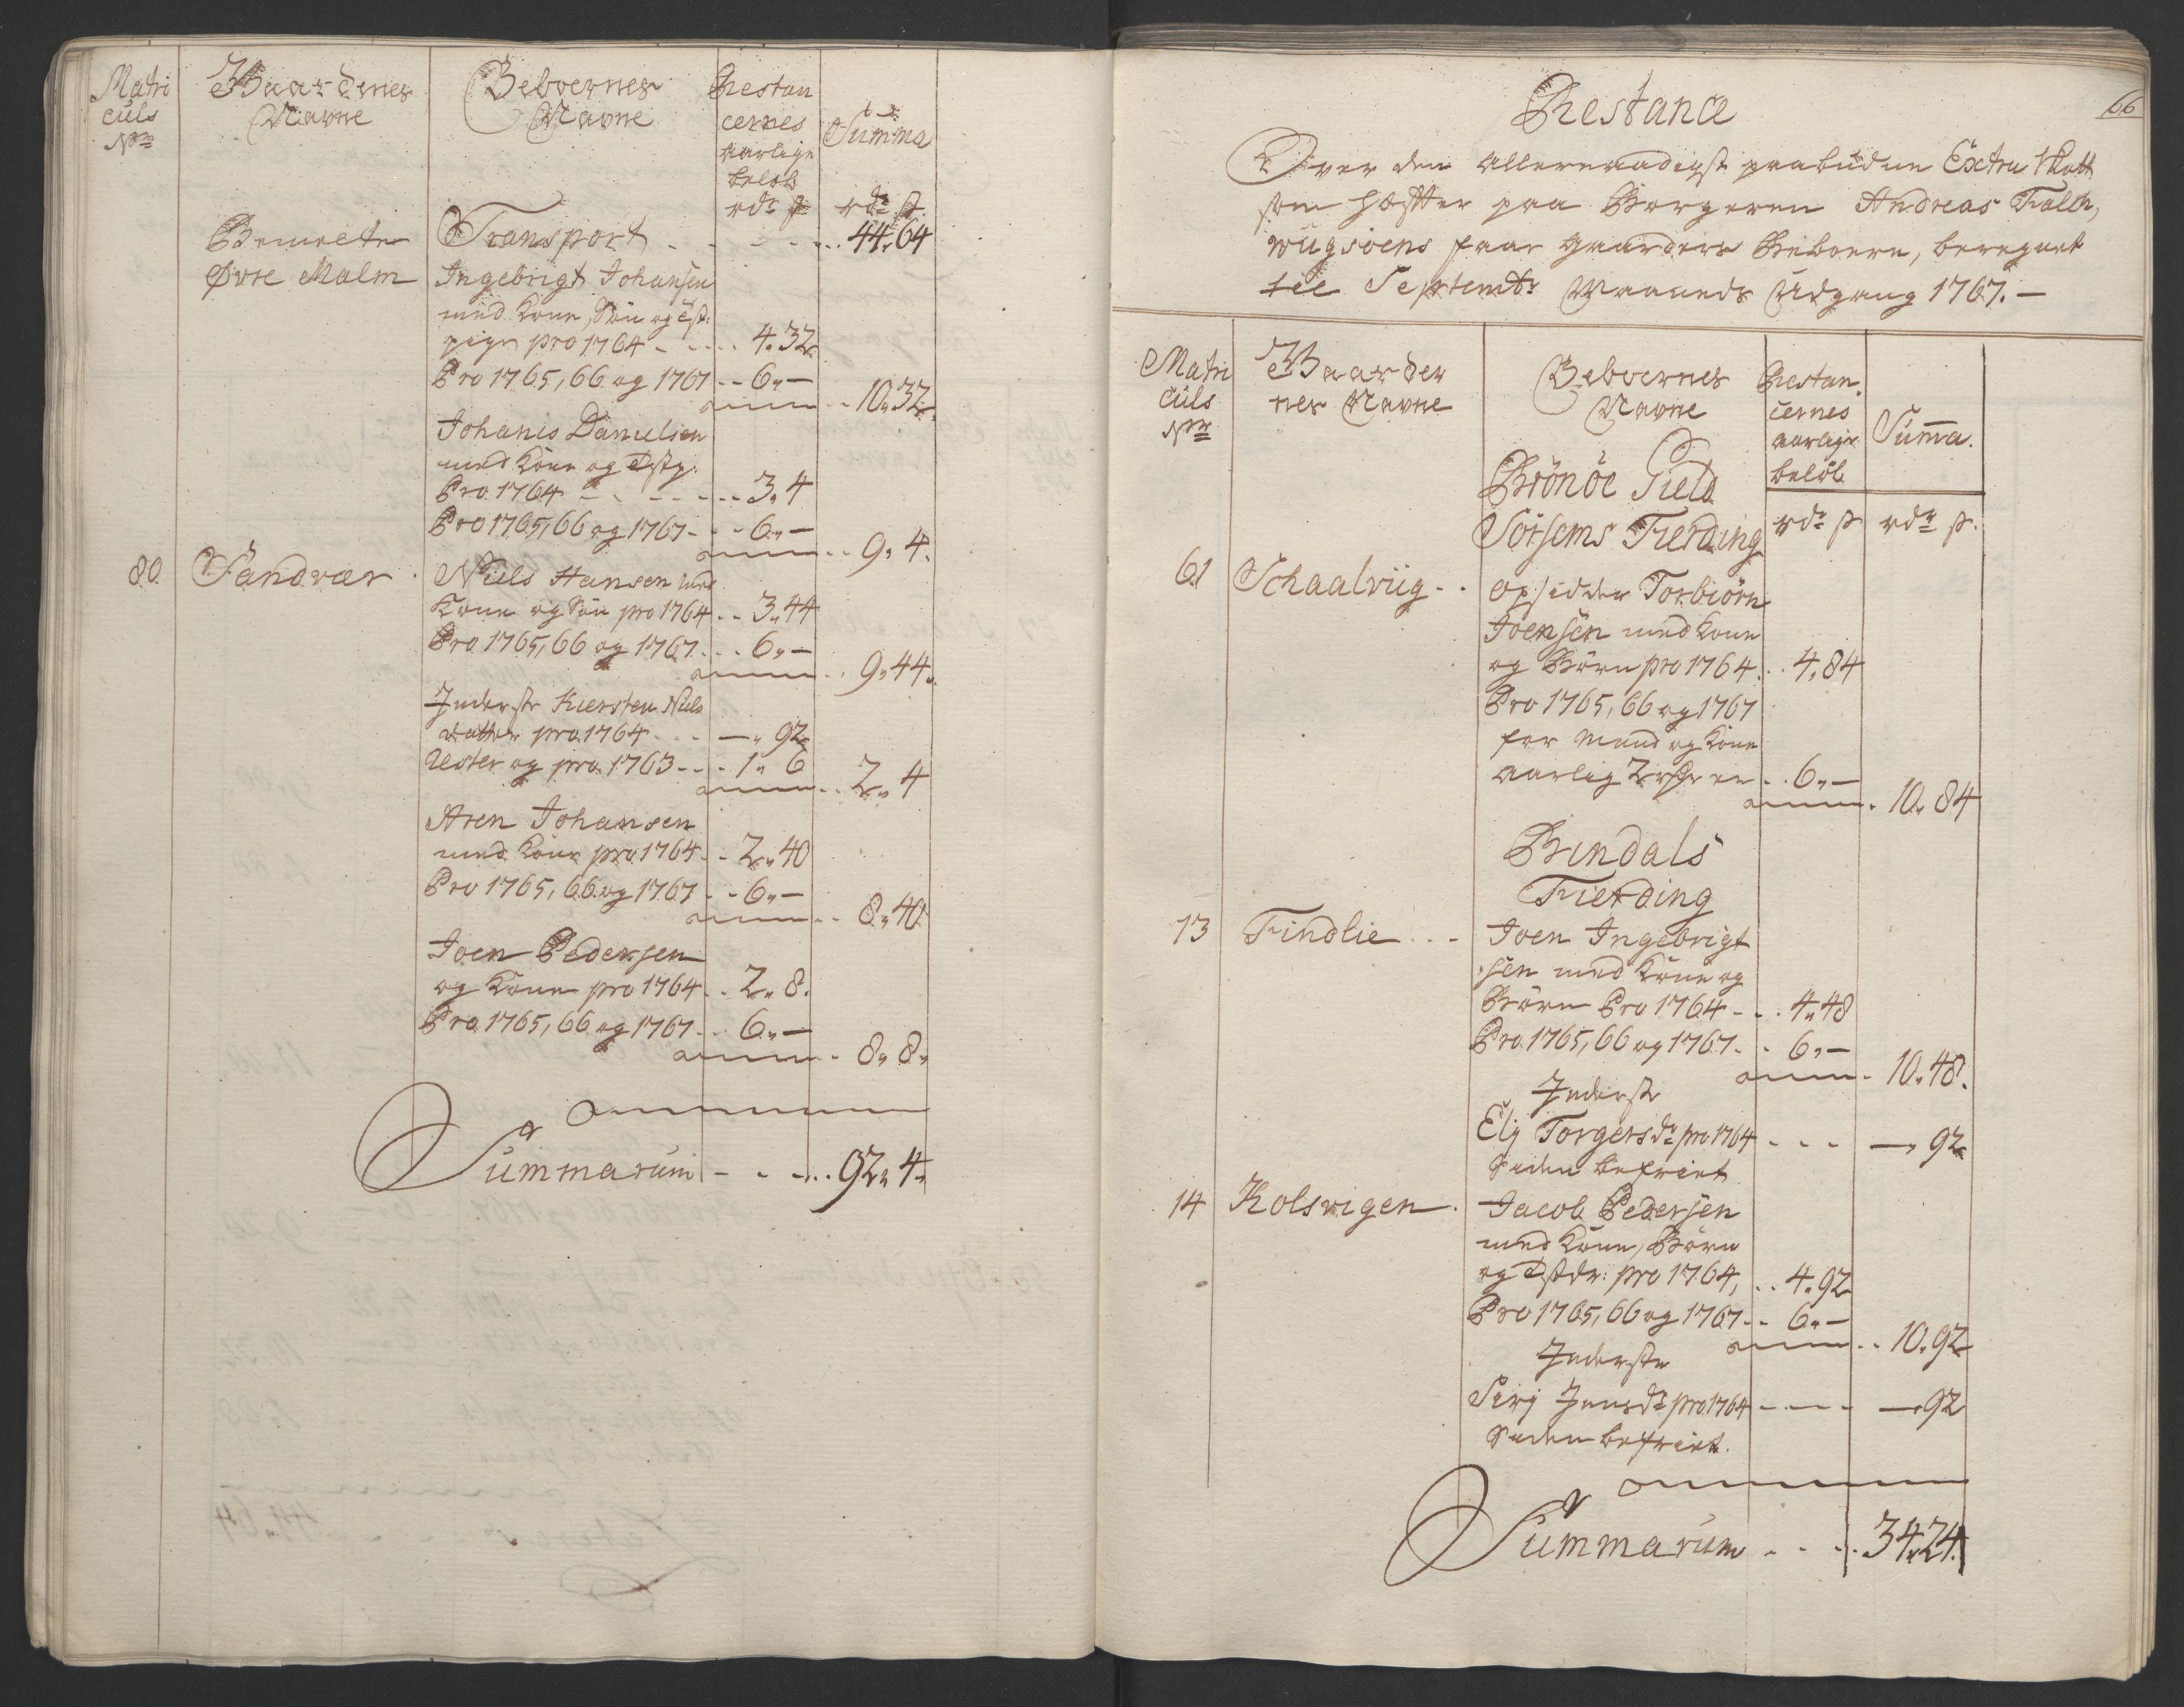 Matri
culs
No
Gaardenes
Navne
Beboernes
Navne
Restan
cernes
aarlige
beløb
rdr ß
Summa
rdr ß
Transport - - - - - - 44„64
Bemelte
Øvre Malm
Ingebrigt Johansen
med Kone, Søn og tst:
pige pro 1764 - - - - 4„32
Pro 1765, 66 og 1767 - - 6„—
10„32
Johanis Danielsen
med Kone og tstp:
Pro 1764 - - - - - - 3„4
Pro 1765, 66 og 1767 - - 6„—
9„4
80 Sandvær
Niels Hansen med
Kone og Søn pro 1764 - - 3„44
Pro 1765, 66 og 1767 - - 6„—
9„44
Inderste Kiersten Niels
datter pro 1764 - - - —„92
Rester og pro 1763 - - - 1„6
2„4
Aren Johansen
med Kone pro 1764 - - 2„40
Pro 1765, 66 og 1767 - - 6„—
8„40
Joen Pedersen
og Kone pro 1764 - - 2„8
Pro 1765, 66 og 1767 - - 6„—
8„8
Summarum - - - - 92„4
66
Restance
Over den Allernaadigst paabudne Extra Skatt
som hæffter paa Borgeren Andreas Falch,
wügsøens faar Gaarders Beboere, beregnet
til Septembr Maaneds Udgang 1767. —
Matri
culs
No
Gaarder
nes Navne
Beboernes
Navne
Restan
cernes
aarlige
beløb
Summa.
Brönöe Gield
Sörsems Fierding
rdr ß rdr ß.
61 Schaalviig - -
opsidder Torbiörn
Joensen med Kone
og Børn pro 1764 - - 4„84
Pro 1765, 66 og 1767
for Mand og Kone
aarlig 2 rdr er - - 6„—
10„84
Bindals
Fierding
13 Findlie - - -
Joen Ingebrigt
sen med Kone og
Børn Pro 1764 - - - 4„48
Pro 1765, 66 og 1767 - - 6„—
10„48
Inderste
Elj Torgersdr pro 1764 - - - —„92
Siden befriet
14 Kolsvigen -
Jacob Pedersen
med Kone, Børn
og tstdr: pro 1764, - - 4„92
Pro 1765, 66 og 1767 - - 6„—
10„92
Inderste
Sirj Jensdr pro 1764 - - - - —„92
Siden befriet.
Summarum - - - - 34„24